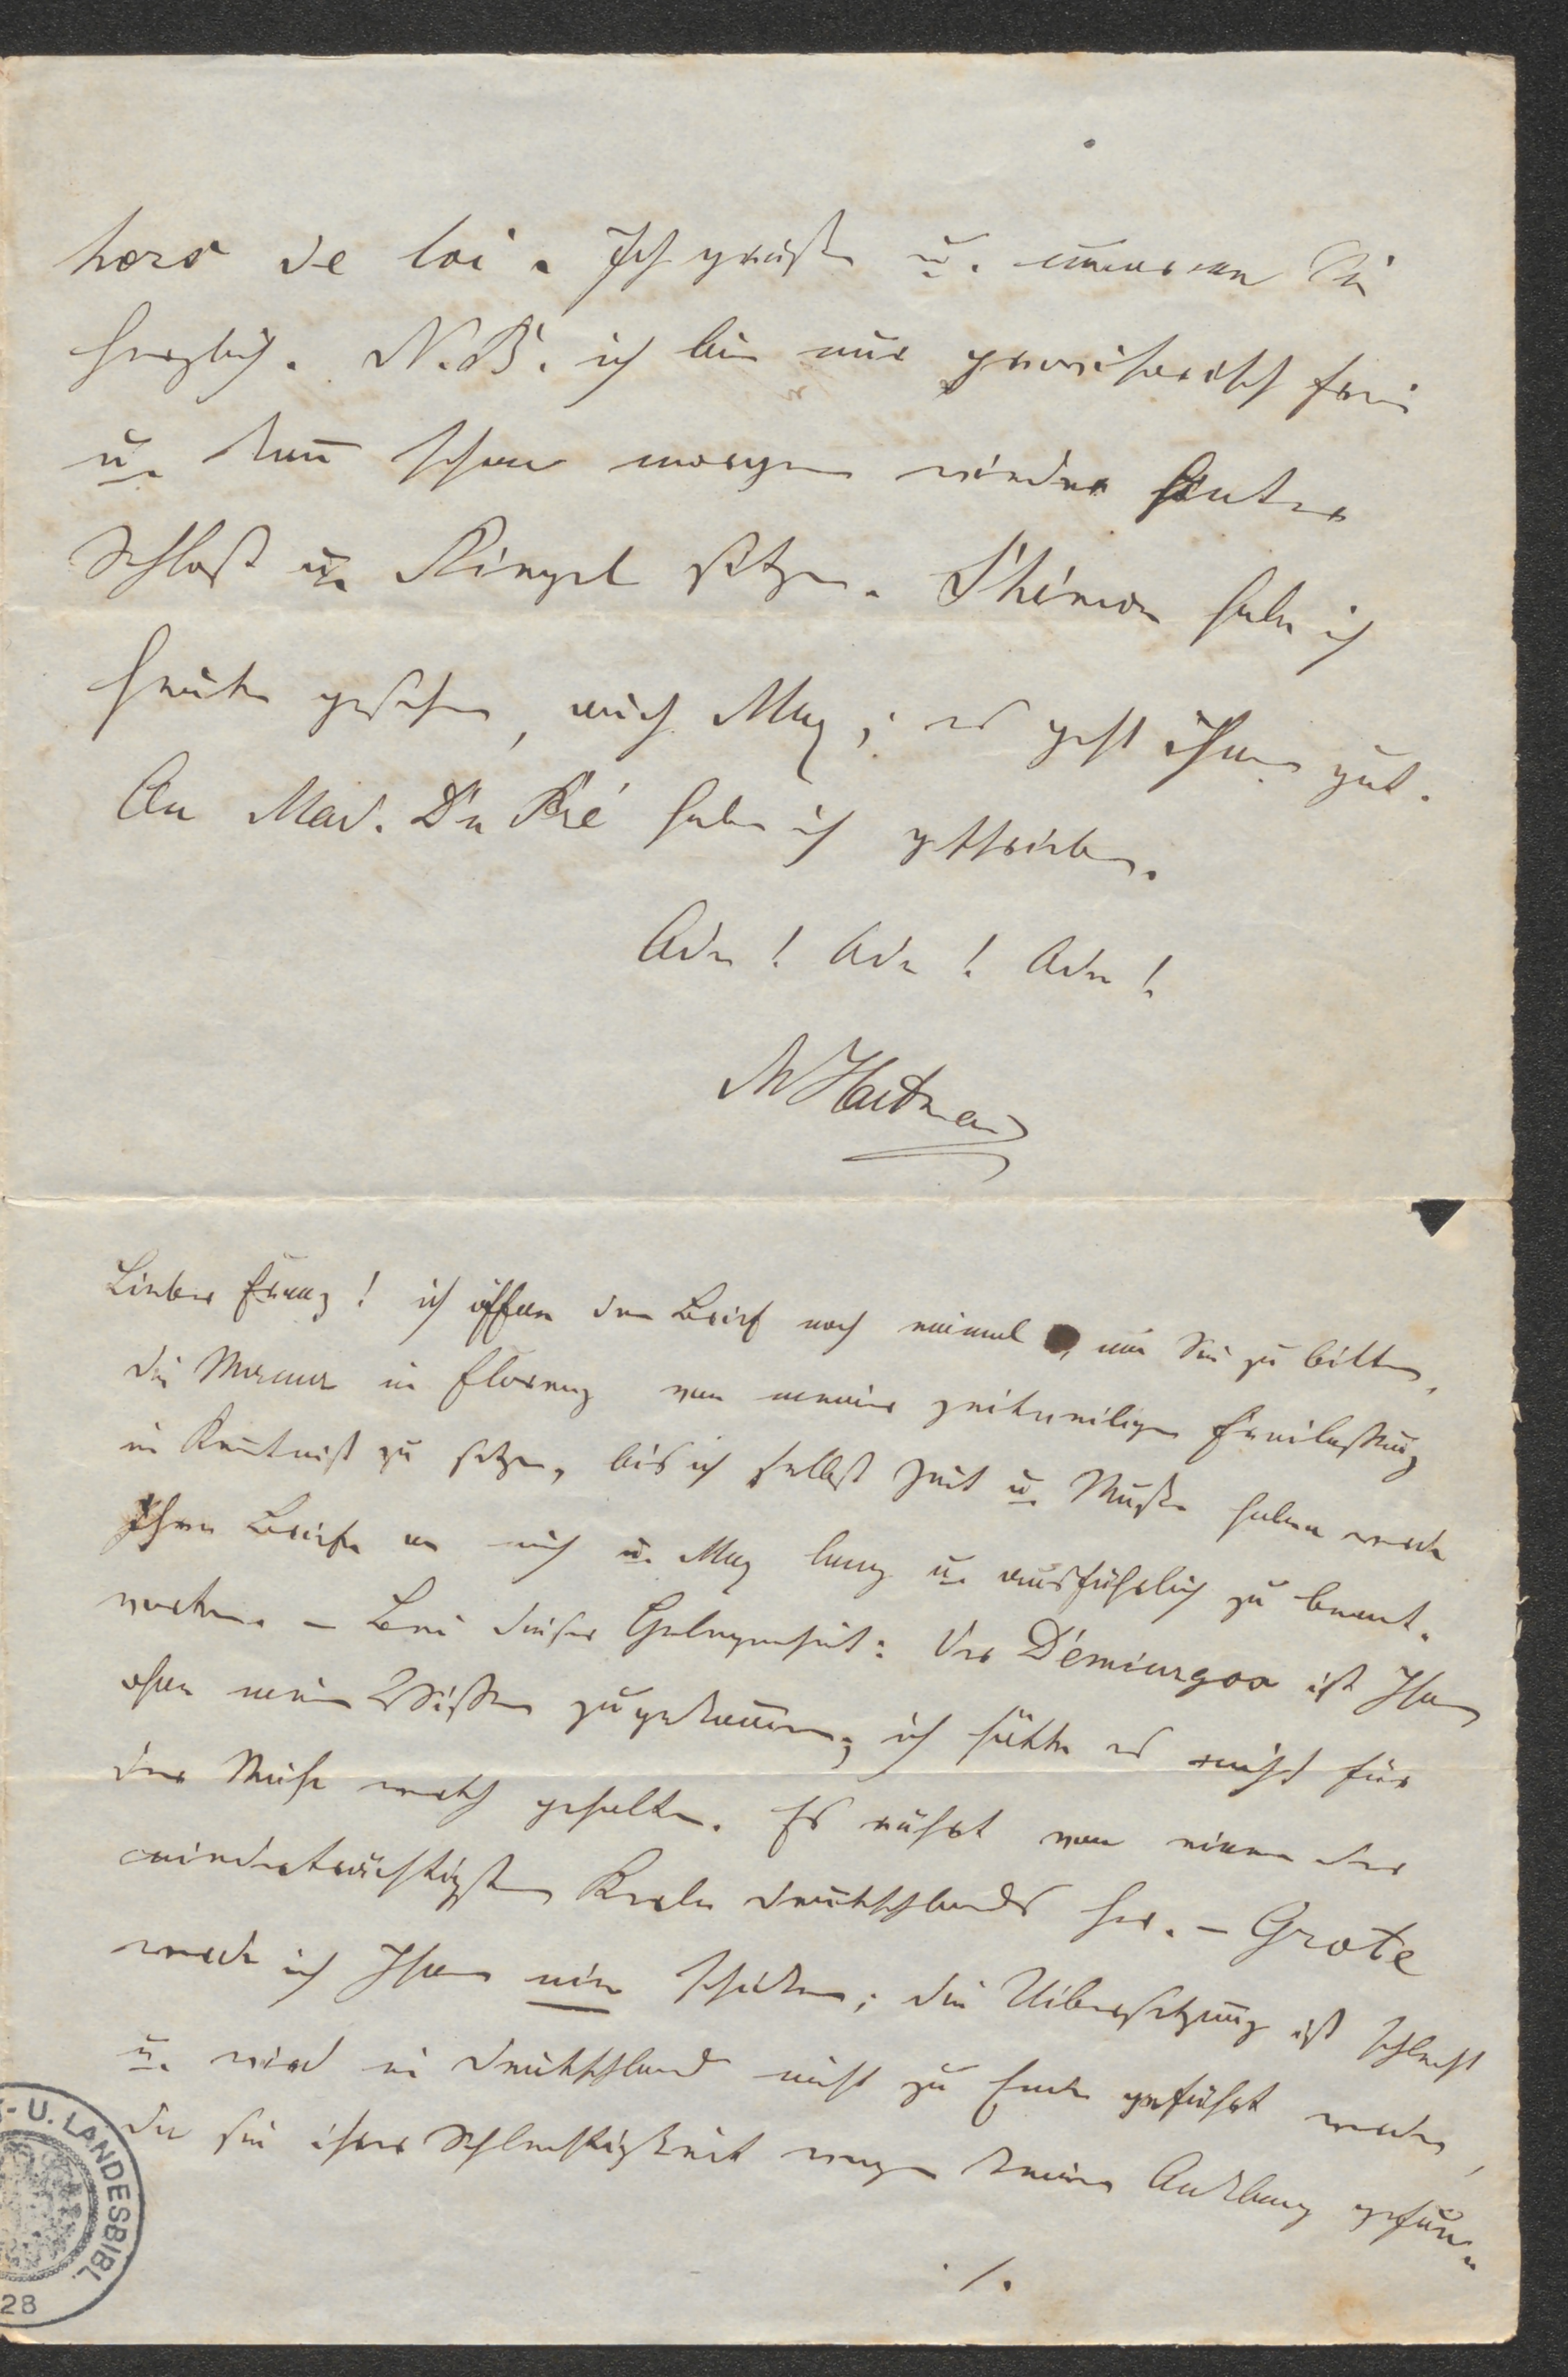 hors de loi. Ich grüße u. umarme Sie
herzlich. N.B. ich bin nur provisorisch frei
u. kann schon morgen wieder hinter
Schloß u. Riegel sitzen. Thérèse habe ich
heute gesehen, auch Max; es geht ihnen gut.
An Mad. Du Pré habe ich geschrieben.
Ade! Ade! Ade!
MHartmann
Lieber Franz! ich öffne den Brief noch einmal, um Sie zu bitten,
die in Florenz von meiner zeitweiligen Freilaßung
in Kenntniß zu setzen, bis ich selbst Zeit u. Muße haben werde
Ihre Briefe an mich u. Max lang u. ausführlich zu beant-
worten. – Bei dieser Gelegenheit: Der Demiurgos ist Ihnen
ohne mein Wissen zugekommen; ich hätte es nicht für
der Mühe werth gehalten. Es rührt von einem der
niederträchtigsten Kerle Deutschlands her. – Grote
werde ich Ihnen nie schicken; die Uibersetzung ist schlecht
u. wird in Deutschland nicht zu Ende geführt werden,
da sie ihrer Schlechtigkeit wegen keinen Anklang gefun-
./.
K- U. LANDESBIBL.
28